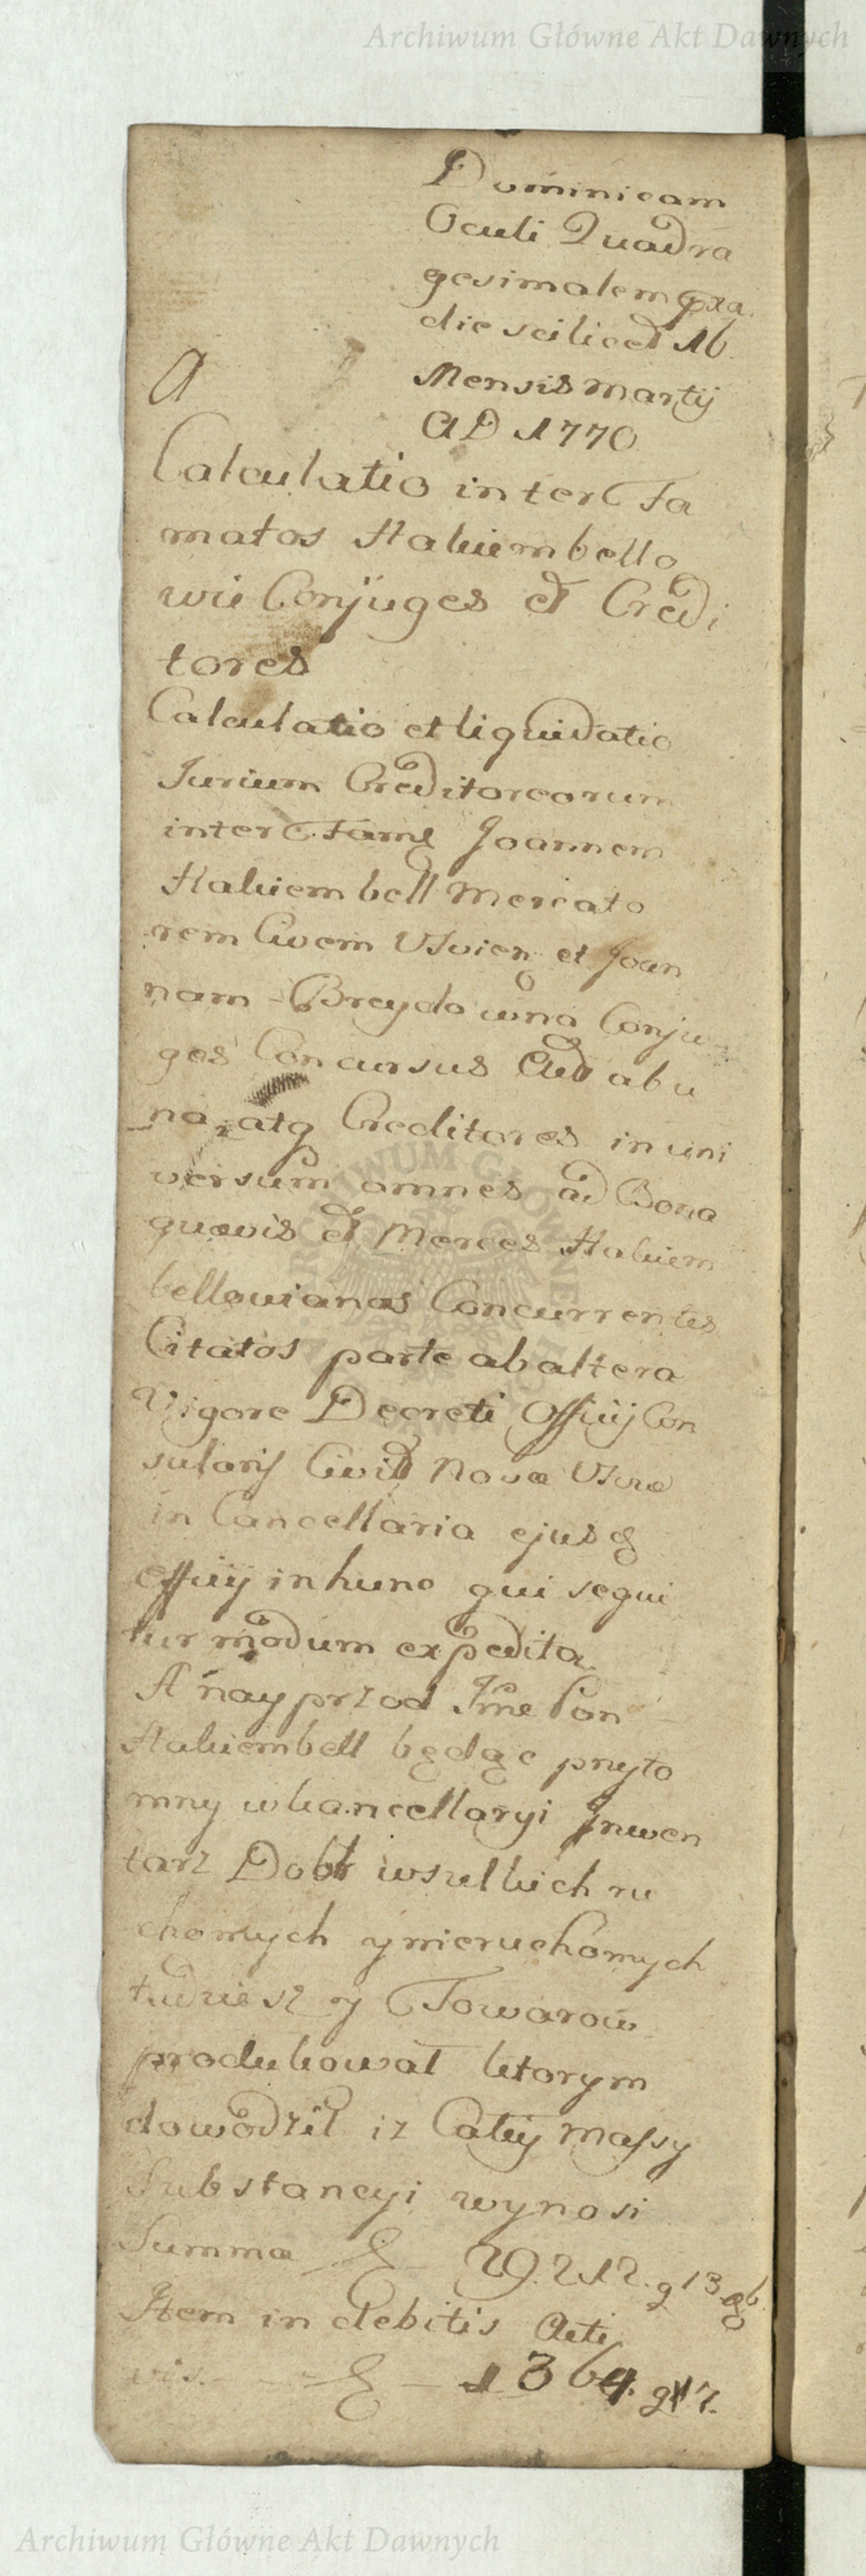 Archiwum Główne Akt Dawnych
Dominicam
Oculi Quadra
gesimalem pxa.
die scilicet 16.
Mensis Martij
A
AD 1770
Calculatio inter Fa
matos Hakiembello
wie Conjuges et Credi
tores
Calculatio et liquidatio
Jurium Creditoreorum
inter Fame Joannem
Hakiembell Mercato
rem Civem et Joan
nam Breydowna Conju
ges Concursus ab u
na, atq Creditores in uni
versum omnes ad Bona
quaevis et Merces Hakiem
bellowianas Concurrentes
Citatos parte ab altera
Vigore Decreti Officij Con
sularis Civit Nova
in Cancellaria ejusd
officij in hunc qui sequi
tur modum expedita
A nayprzod Jme Pan
Hakiembell będąc przyto
mny w kancellaryi Jnwen
tarz Dobr wszelkich ru
chomych y nieruchomych
tudziesz y Towarow
produkował ktorym
dowodził iz Całey Massy
Substancyi wynosi
Summa 29.212. g 13
Item in debitis Acti
vis. 1364. g 17.
Archiwum Główne Akt Dawnych